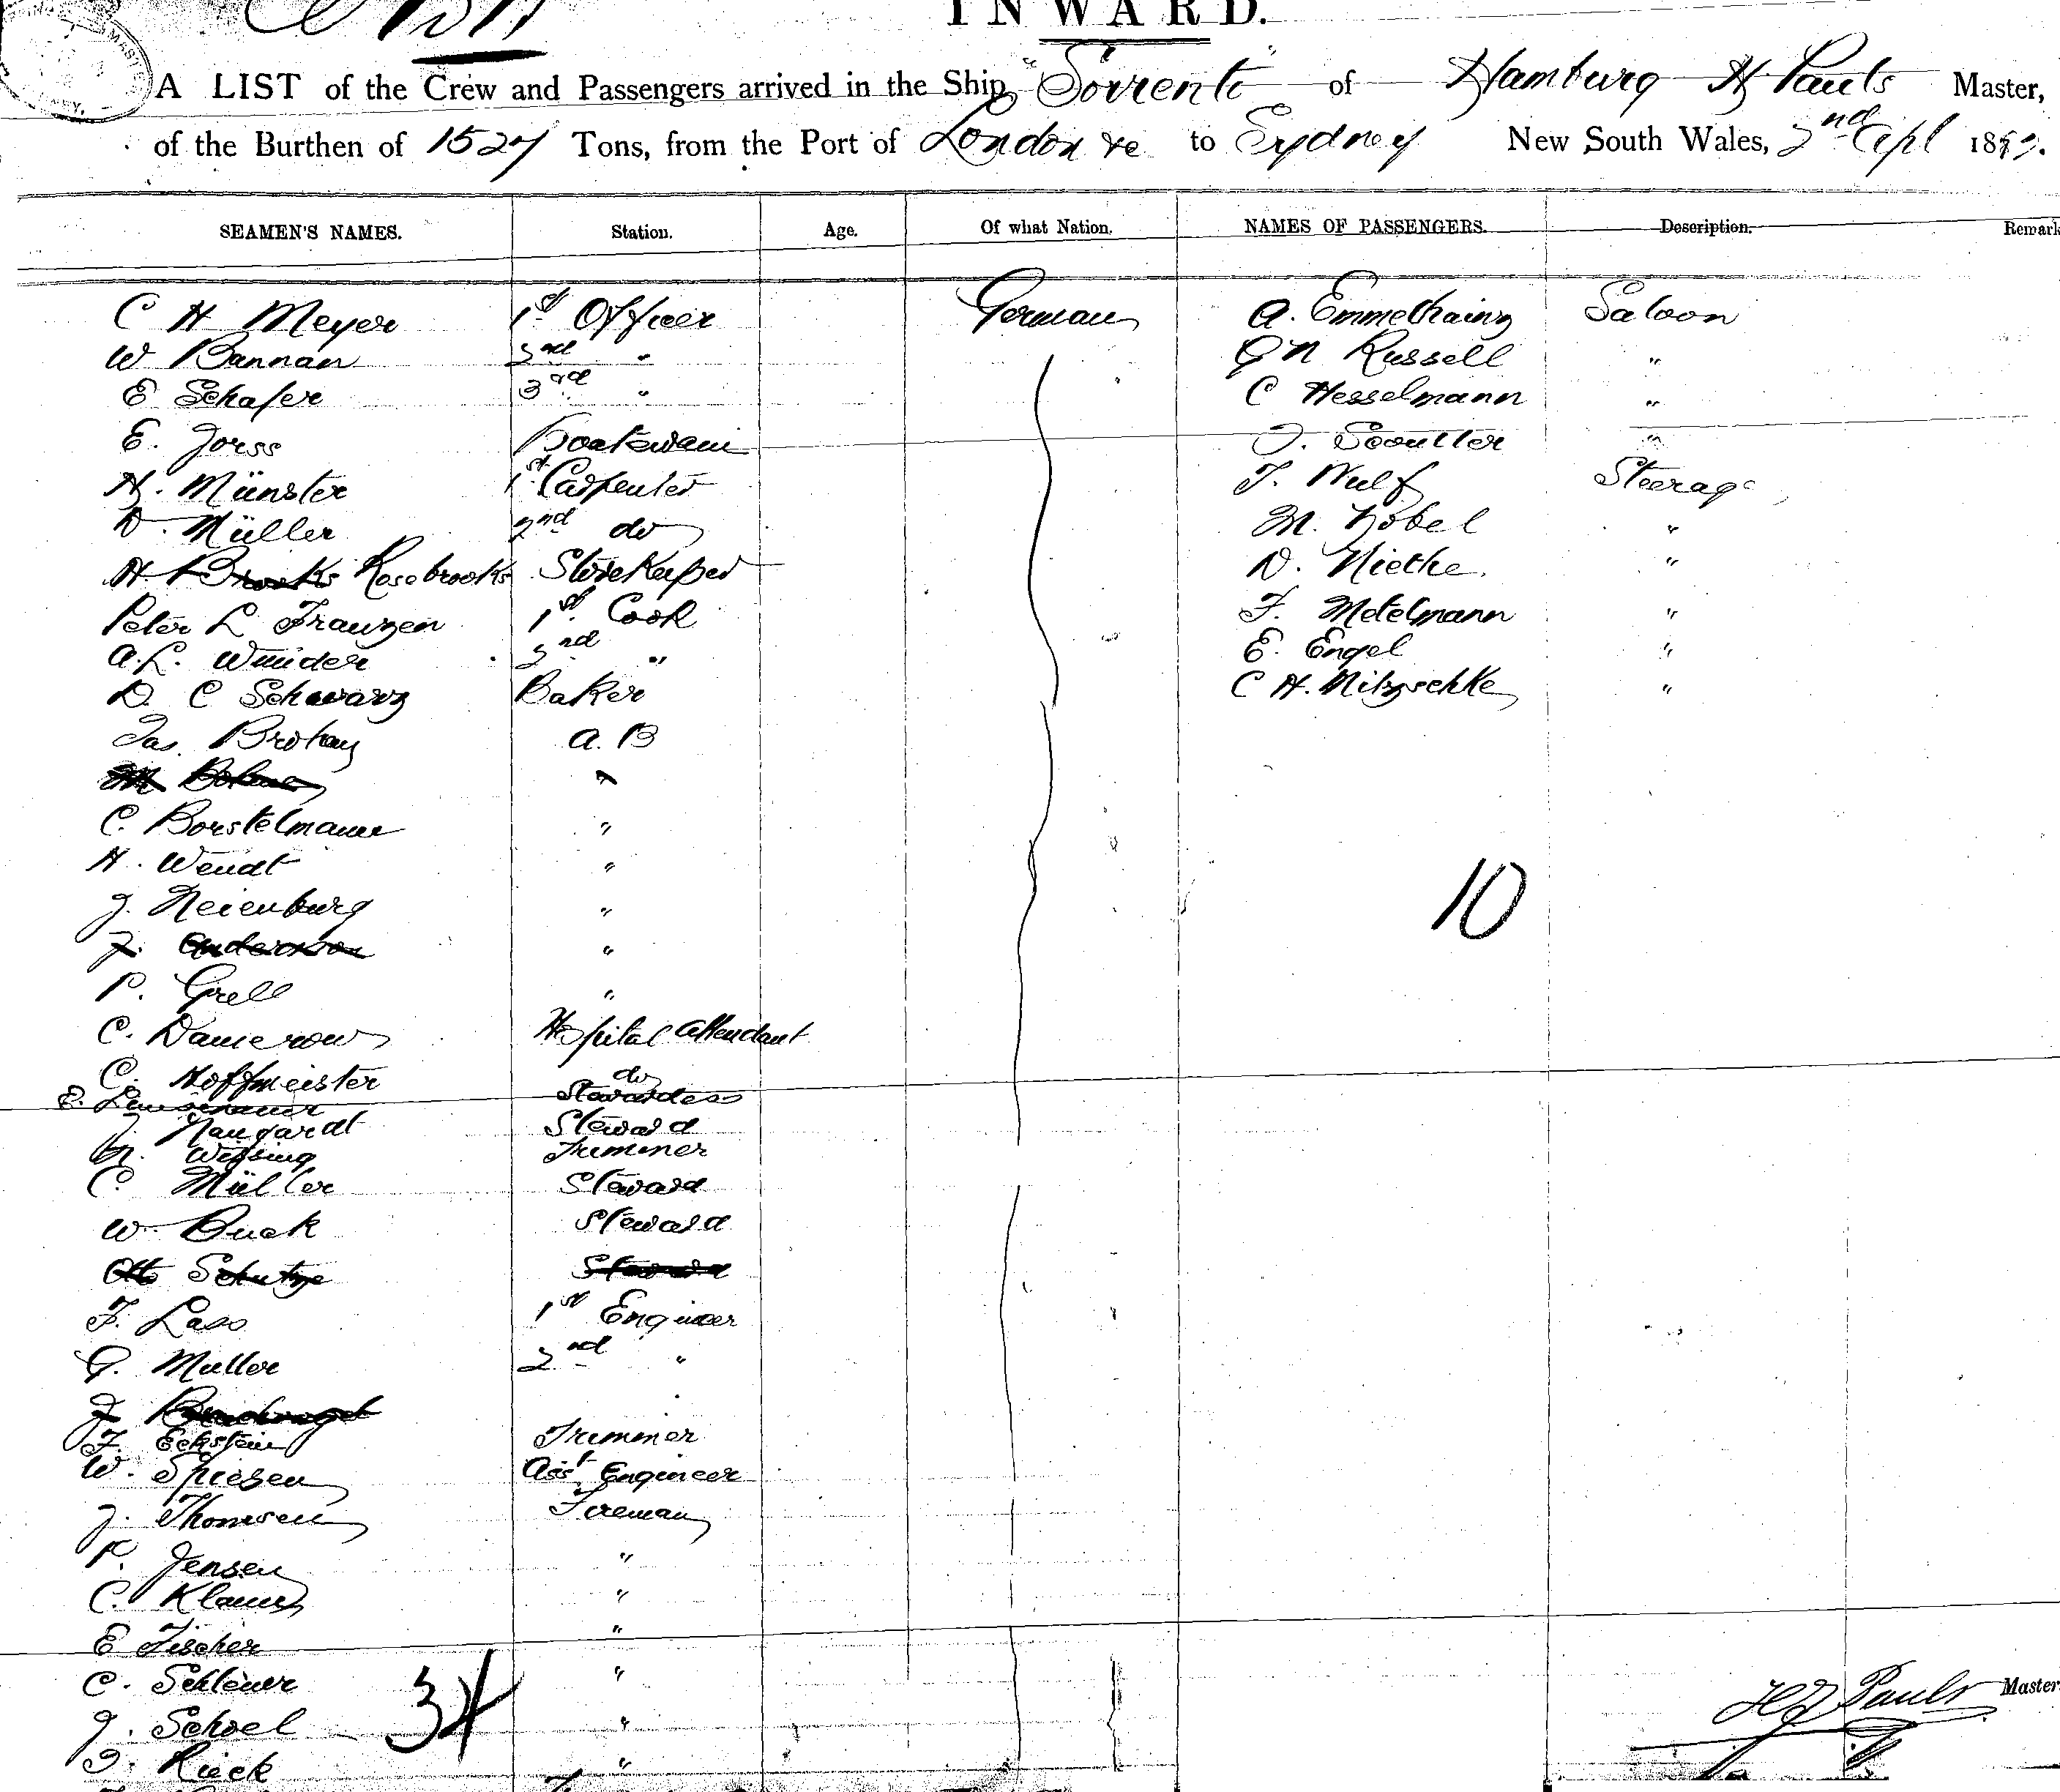 INWARD.
A LIST of the Crew and Passengers arrived in the Ship "Sorrento" of Hamburg H Pauls Master,
of the Burthen of 1527 Tons, from the Port of London &c to Sydney New South Wales, 2nd Apl 18
SEAMEN'S NAMES. Station. Age. Of what Nation. NAMES OF PASSENGERS. Description. Remark
C H Meyer 1st Officer German A. Emmelhainz Saloon
W Bannan 2nd " G N Russell "
E Schafer 3rd " C Hesselmann "
E. Jorss Boatswain J. Scoutter "
H. Münster 1st Carpenter T. Wulf Steerage
D. Müller 2nd do M. Zobel "
H Brooks Rosebrooks Storekeeper D. Niethe. "
Peter L Franzen 1st Cook F. Metelmann "
A. L. Wunder 2nd " E. Engel "
D. C Schwarz Baker C H. Nitzschke "
Jas. Brohan A. B
"
C. Borstelmann "
H. Wendt "
J. Neienburg "
J. Anderson "
P. Grell "
10
C. Damerow Hospital Attendant
C. Hoffmeister do
E. Stewardess
J. Naugardt Steward
Wissing Trimmer
C. Müller Steward
W. Buck Steward
Otto Schutze Steward
F. Lass 1st Engineer
G. Muller 2nd "
J.
F. Eckstein Trimmer
W. Spiesen Asst Engineer
J. Thomsen Fireman
P. Jensen "
C. Klauss "
E Fischer "
C. Schleuer "
J. Schoel "
34
H J Pauls Master
J. Rieck "